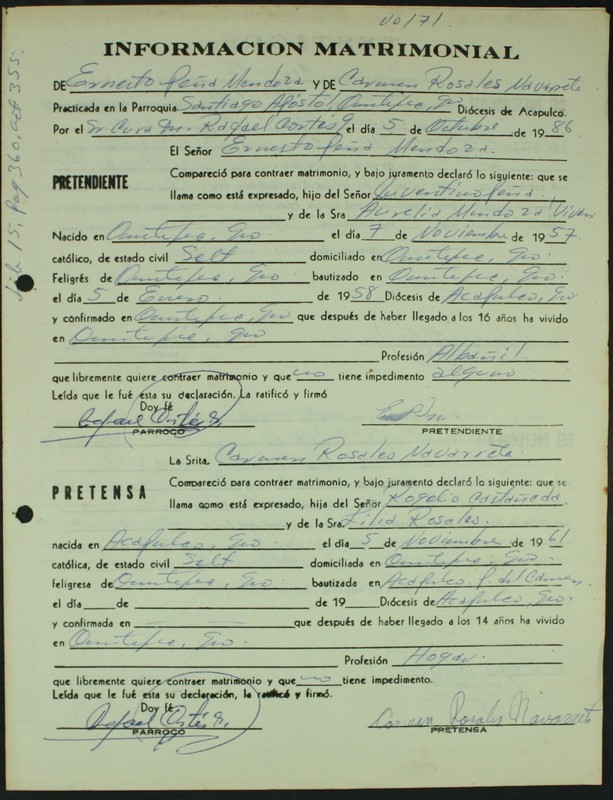 No 171.
INFORMACION MATRIMONIAL
DE Ernesto Peña Mendoza Y DE Carmen Rosales Navarrete
Practicada en la Parroquia Santiago Apóstol, Ometepec, Gro Diócesis de Acapulco.
Por el Sr Cura Dn. Rafael Cortés G. el día 5 de Octubre de 1986.
El Señor Ernesto Peña Mendoza.
PRETENDIENTE
Compareció para contraer matrimonio, y bajo juramento declaró lo siguiente: que se
llama como está expresado, hijo del Señor Juventino Peña.
y de la Sra Aurelia Mendoza Viven
Nacido en Ometepec, Gro. el día 7 de Noviembre de 1957
católico, de estado civil Solt domiciliado en Ometepec, Gro.
Feligrés de Ometepec, Gro. bautizado en Ometepec, Gro.
el día 5 de Enero. de 1958 Diócesis de Acapulco, Gro
y confirmado en Ometepec, Gro que después de haber llegado a los 16 años ha vivido
en Ometepec, Gro
Profesión Albañil.
que libremente quiere contraer matrimonio y que no tiene impedimento alguno
Leída que le fué esta su declaración. La ratificó y firmó
Doy fé
Rafael Cortés G.
PARROCO
PRETENDIENTE
La Srita. Carmen Rosales Navarrete.
PRETENSA
Compareció para contraer matrimonio, y bajo juramento declaró lo siguiente: que se
llama como está expresado, hija del Señor Rogelio Castañeda.
y de la Sra. Lilia Rosales.
nacida en Acapulco, Gro. el día 5 de Noviembre de 1961
católica, de estado civil Solt domiciliada en Ometepec, Gro.
feligresa de Ometepec, Gro. bautizada en Acapulco. P. del Carmen
el día de de 19 Diócesis de Acapulco, Gro.
y confirmada en que después de haber llegado a los 14 años ha vivido
en Ometepec, Gro.
Profesión Hogar.
que libremente quiere contraer matrimonio y que no tiene impedimento.
Leída que le fué esta su declaración, la ratificó y firmó.
Doy fé
Rafael Cortés G.
PARROCO
Carmen Rosales Navarrete
PRETENSA
Lib 15, Pag 360, act 355.